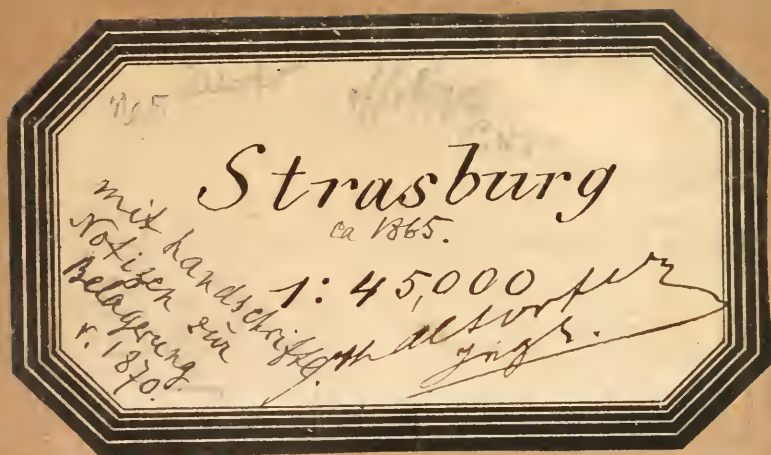 No 5
Strasburg
ca 1865.
1:45,000
mit handschriftlg.
Notizen zur
Belagerung
v. 1870.
Altorfer
Ingr.